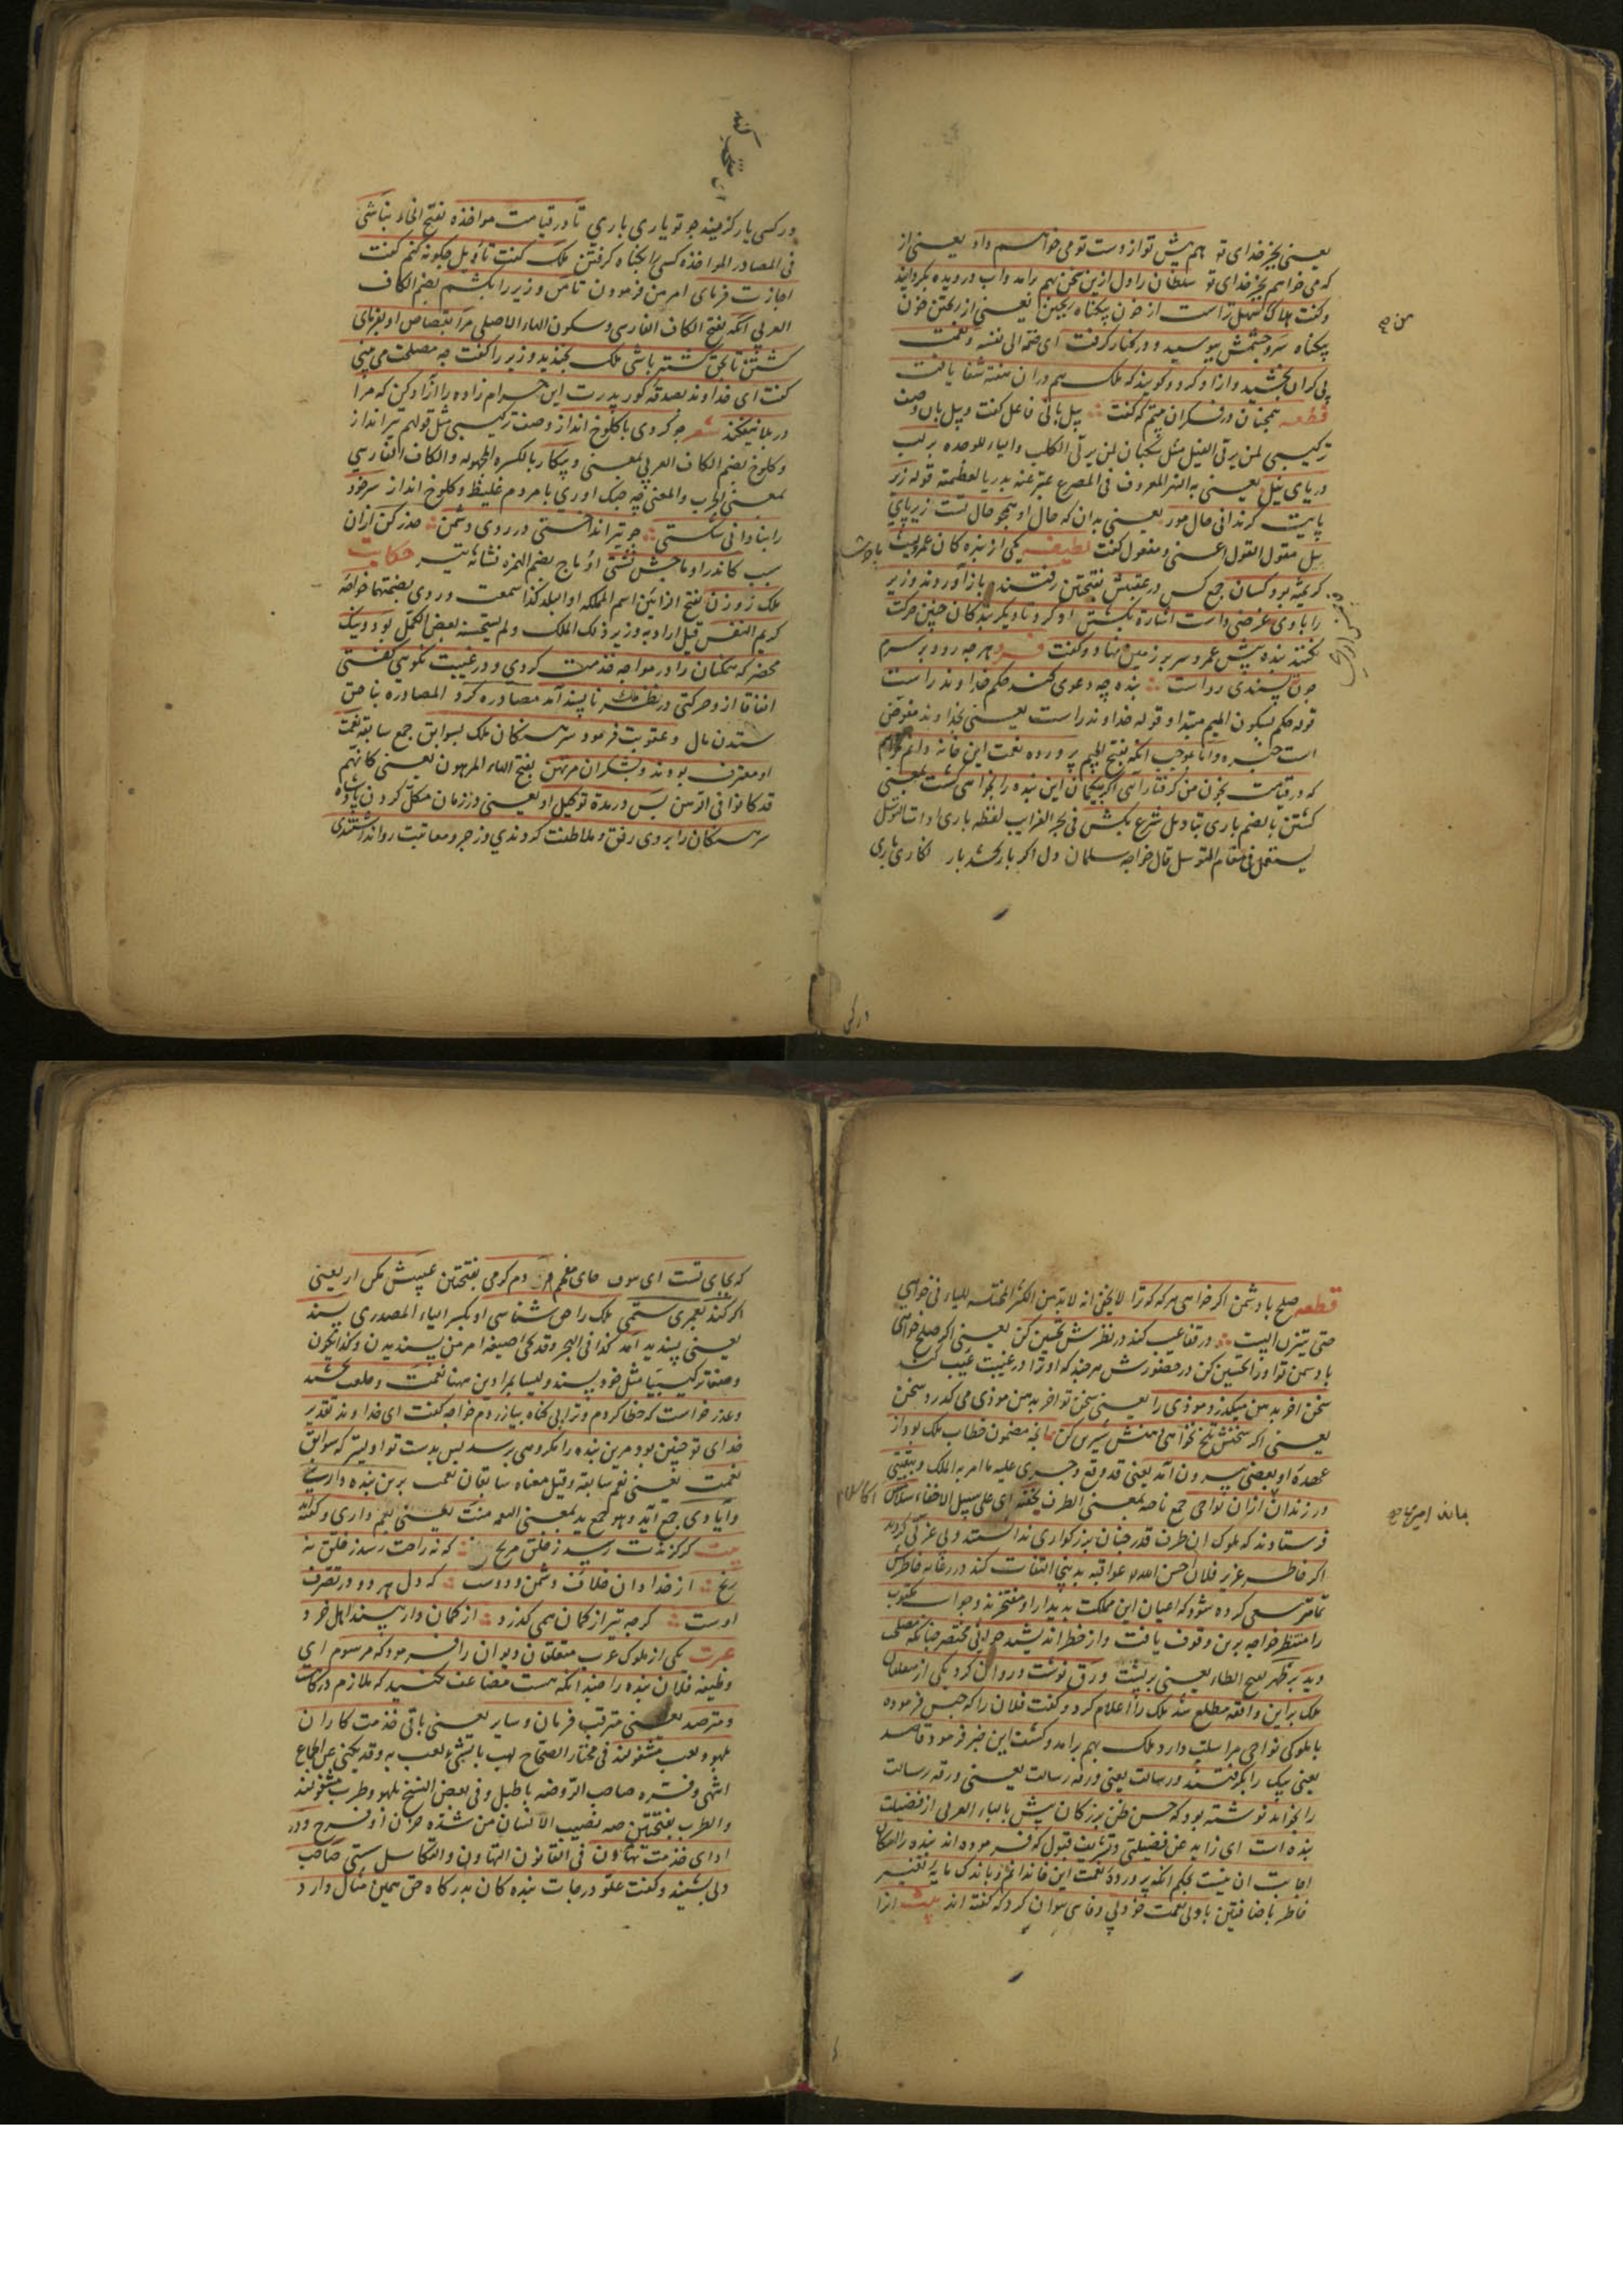 یعنی بجز خدای تو هم پیش تو از دست تو می خواهم داد یعنی از
که می خواهم بجز خدای تو سلطان را دل ازین سخن بهم برآمد و آب در دیده بگردانید
وگفت هلاک من اولیتر است از خون بیگناه ریختن یعنی از ریختن خون
بیگناه سر و چشمش ببوسید و در کنار گرفت ای ضمه الی نفسه و نعمت
بی کران بخشید و آزاد کرد و گویند که ملک هم دران هفته شفا یافت
قطعه همچنان در فکر آن بیتم که گفت پیل بانی فاعل گفت و پیل بان وصف
ترکیبی لمن یرقی الفیل مثل سگبان لمن یرقی الکلب والیاء للوحده بر لب
دریای نیل یعنی به النهر المعروف فی المصر عبر عنه بدریا لعظمته قوله زیر
پایت گر ندانی حال مور یعنی بدان که حال او همچو حال تست زیر پای
پیل مقول القول اعنی و مفعول گفت لطیفه یکی از بنده کان عمرو لیث
گریخته بود کسان جمع کس در عقبش بفتحتین رفتند و باز آوردند وزیر
را با وی غرضی داشت اشارة بکشتن او کرد تا دیگر بندکان چنین حرکت
نکنند بنده پیش عمرو سر بر زمین نهاد و گفت فرد هر چه رود بر سرم
چون تو پسندی رواست بنده چه دعوی کند حکم خداوند راست
قوله حکم بسکون المیم مبتدا و قوله خداوند راست یعنی بخداوند مفوض
است خبره و اما بموجب آنکه بفتح الجیم پرورده نعمت این خانه دانم نخواهم
که در قیامت بخون من گرفتار آیی اگر بیگمان این بنده را بخواهی کشت بمعنی
کشتن بالضم باری بتاویل شرع بکش فی بحر الغرایب لفظه باری ادات التوسل
یستعمل فی مقام التوسل قال خواجه سلمان دل اگر بار کشد بار نکاری باری
در کسی یار کزیند چو تو یاری باری تا در قیامت مواخذه بفتح الخاء نباشی
فی المصادر المواخذه کسی را بگناه گرفتن ملک گفت تاویل چگونه کنم گفت
اجازت فرمای امر من فرمودن تا من وزیر را بکشم بضم الکاف
العربی آنکه بفتح الکاف الفارسی وسکون الهاء الاصلی مرا بقصاص او بفرمای
کشتن تا بحق کشته باشی ملک بخندید وزیر را گفت چه مصلحت می بینی
گفت ای خداوند بصدقه کور پدرت این حرام زاده را آزاد کن که مرا
در بلا نیفکند شعر چو کردی با کلوخ انداز وصف ترکیبی مثل قولهم تیر انداز
و کلوخ بضم الکاف العربی بمعنی و پیکار بالکسره المجهوله والکاف الفارسی
بمعنی الحرب والمعنی چه جنگ آوری با مردم غلیظ و کلوخ انداز سر خود
را بنادانی شکستی چو تیر انداختی در روی دشمن حذر کن کزان
سبب کاندر آماجش نشستی آماج بضم الهمزه نشانه تیر حکایت
ملک زوزن بفتح الزائین اسم المملکه او البلد کذا سمعت و روی بضمتهما خواجه
کریم النفس قیل اراد به وزیر ذلک الملک ولم یستحسنه بعض الکمل بود و نیک
محضر که همکنان را در مواجه خدمت کردی و در غیبت نکویی گفتی
اتفاقا ازو حرکتی در نظر ملک ناپسند آمد مصادره کرد المصادره بناحق
ستدن مال و عقوبت فرمود سرهنگان ملک بسوابق جمع سابقه نعمت
او معترف بودند و بشکر آن مرتهن بفتح الهاء المرهون یعنی کانهم
قد کانوا فی الرهن پس در مدة توکیل او یعنی در زمان موکل کردن پادشاه
سرهنگان را بر وی رفق و ملاطفت کردندی و زجر و معاقبت روا نداشتندی
در کسی
قطعه صلح با دشمن اگر خواهی هر گه که ترا لا یخفی انه لا بد من الکسر المختلسه للیاء فی خواهی
حتی یتزن البیت در قفا عیب کند در نظرش تحسین کن یعنی اگر صلح خواهی
با دشمن تو او را تحسین کن در حضورش هر چند که او ترا در غیبت عیب کند
سخن آخر بدهن میگذرد موذی را یعنی سخن تو آخر بدهن موذی می گذرد و سخن
یعنی اگر سخنش تلخ نخواهی دهنش شیرین کن آنچه مضمون خطاب ملک بود از
عهدة او ببعضی بیرون آمد یعنی قد وقع وجری علیه ما امر به الملک و ببقیتی
در زندان بماند از آن نواحی جمع ناحیه بمعنی الطرف بخفیه ای علی سبیل الاخفاء
فرستادند که ملوک آن طرف قدر چنان بزرکواری ندانستند و بی عزتی کردند
اگر خاطر عزیز فلان احسن الله عواقبه بجانب ما التفات کند در رعایه خاطرش
تمامتر سعی کرده شود که اعیان این مملکت بدیدار او مفتخرند و جواب مکتوب
را منتظر خواجه برین وقوف یافت و از خطر اندیشید جوابی مختصر چنانکه مصلحت
دید بر ظهر بفتح الظاء یعنی بر پشت ورق نوشت و روان کرد یکی از متعلقان
ملک برین واقعه مطلع شد ملک را اعلام کرد و گفت فلان را که حبس فرموده
با ملوک نواحی مراسلت دارد ملک بهم برآمد و کشف این خبر فرمود قاصد
یعنی پیک را بگرفتند و رسالت یعنی ورقه رسالت یعنی ورقه رسالت
را بخواند نوشته بود که حسن ظن بزرکان بیش بالباء العربی از فضیلت
بنده است ای زاید عن فضیلتی و تشریف قبول که فرموده اند بنده را امکان
اجابت آن نیست بحکم آنکه پرورده نعمت این خاندانم و باندک مایه تغییر
خاطر باضافتین با ولی نعمت خود بی وفایی نتوان کرد که گفته اند بیت آنرا
که بجای تست ای سوف جای مفخم هر دم کرمی بفتحتین عیبش مکن ار یعنی
اگر کند بعمری ستمی ملک را حق شناسی او بکسر الیاء المصدری پسند
یعنی پسندیده آمد کذا فی البحر وقد یجی صیغه امر من پسندیدن وکذا یکون
وصفا ترکیبیا مثل خود پسند ولیسا بمرادین ههنا نعمت و خلعت بخشید
وعذر خواست که خطا کردم و ترا بی گناه بیازردم خواجه گفت ای خداوند تقدیر
خدای تو چنین بود مرین بنده را مکروهی برسد پس بدست تو اولیتر که سوابق
نعمت یعنی نعم سابقه و قیل معناه سابقان نعمت برین بنده داری
و ایادی جمع اید وهو جمع ید بمعنی النعمه منت یعنی نعیم داری و گفته اند
بیت گر گزندت رسد ز خلق مرنج که نه راحت رسد ز خلق نه
رنج از خدا دان خلاف دشمن و دوست که دل هر دو در تصرف
اوست گرچه تیر از کمان همی گذرد از کمان دار بیند اهل خرد
عبرت یکی از ملوک عرب متعلقان دیوان را فرمود که مرسوم ای
وظیفه فلان بنده را چندانکه هست مضاعف کنید که ملازم درگاهست
ومترصد یعنی مترقب فرمان و سایر یعنی باقی خدمت کاران
بلهو ولعب مشغولند فی مختار الصحاح لهب بالشیء لعب به وقد یکنی عن الجماع
انتهی وفسره صاحب الروضه باطیل وفی بعض النسخ بلهو وطرب مشغولند
والطرب بفتحتین خفه تصیب الانسان من شدة حزن او فرح ودر
ادای خدمت تهاون فی القانون التهاون والتکاسل سستی صاحب
دلی بشنید و گفت علو درجات بنده کان بدرکاه حق همین مثال دارد